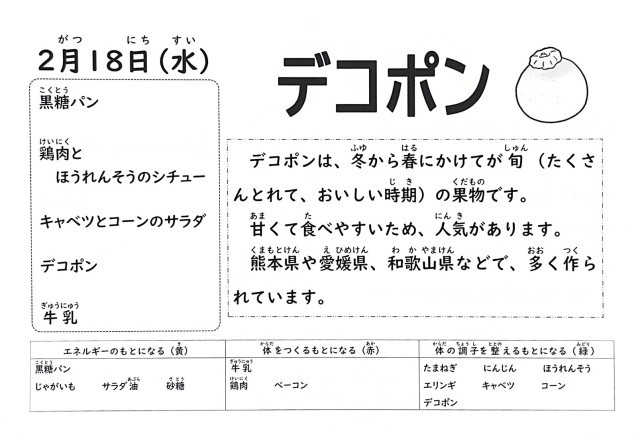 2月18日(水)
デコポン
黒糖パン
鶏肉と
ほうれんそうのシチュー
キャベツとコーンのサラダ
デコポン
牛乳
デコポンは、冬から春にかけてが旬(たくさ
んとれて、おいしい時期)の果物です。
甘くて食べやすいため、人気があります。
熊本県や愛媛県、和歌山県などで、多く作ら
れています。
エネルギーのもとになる(黄)
黒糖パン
じゃがいも サラダ油 砂糖
体をつくるもとになる(赤)
牛乳
鶏肉 ベーコン
体の調子を整えるもとになる(緑)
たまねぎ にんじん ほうれんそう
エリンギ キャベツ コーン
デコポン